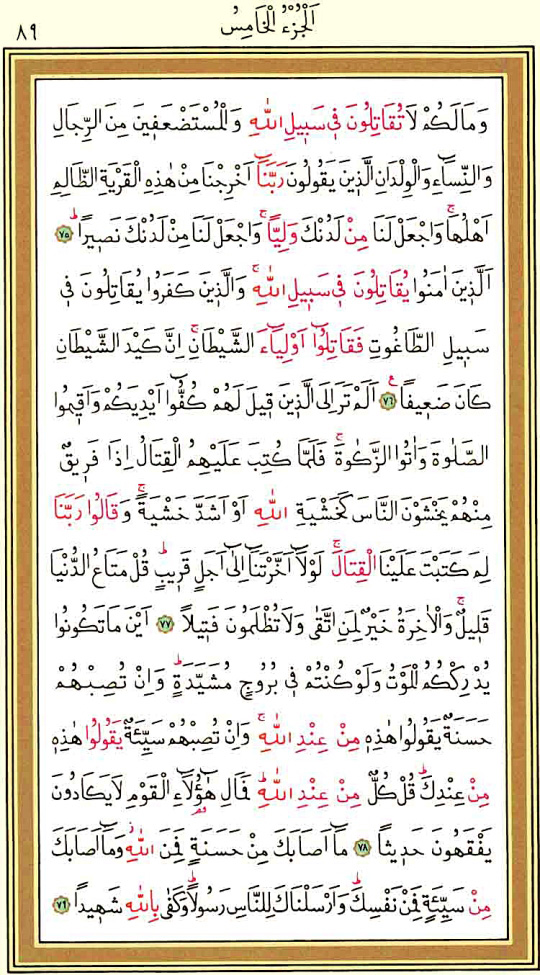 اَلْجُزْءُ الْخَامِسُ
٨٩
وَمَا لَكُمْ لَا تُقَاتِلُونَ ف۪ي سَب۪يلِ اللّٰهِ وَالْمُسْتَضْعَف۪ينَ مِنَ الرِّجَالِ
وَالنِّسَٓاءِ وَالْوِلْدَانِ الَّذ۪ينَ يَقُولُونَ رَبَّنَٓا اَخْرِجْنَا مِنْ هٰذِهِ الْقَرْيَةِ الظَّالِمِ
اَهْلُهَاۚ وَاجْعَلْ لَنَا مِنْ لَدُنْكَ وَلِيًّاۚ وَاجْعَلْ لَنَا مِنْ لَدُنْكَ نَص۪يرًاۜ ﴿٧٥﴾
اَلَّذ۪ينَ اٰمَنُوا يُقَاتِلُونَ ف۪ي سَب۪يلِ اللّٰهِۚ وَالَّذ۪ينَ كَفَرُوا يُقَاتِلُونَ ف۪ي
سَب۪يلِ الطَّاغُوتِ فَقَاتِلُٓوا اَوْلِيَٓاءَ الشَّيْطَانِۚ اِنَّ كَيْدَ الشَّيْطَانِ
كَانَ ضَع۪يفًا ﴿٧٦﴾ ع اَلَمْ تَرَ اِلَى الَّذ۪ينَ ق۪يلَ لَهُمْ كُفُّٓوا اَيْدِيَكُمْ وَاَق۪يمُوا
الصَّلٰوةَ وَاٰتُوا الزَّكٰوةَۚ فَلَمَّا كُتِبَ عَلَيْهِمُ الْقِتَالُ اِذَا فَر۪يقٌ
مِنْهُمْ يَخْشَوْنَ النَّاسَ كَخَشْيَةِ اللّٰهِ اَوْ اَشَدَّ خَشْيَةًۚ وَقَالُوا رَبَّنَا
لِمَ كَتَبْتَ عَلَيْنَا الْقِتَالَۚ لَوْلَٓا اَخَّرْتَنَٓا اِلٰٓى اَجَلٍ قَر۪يبٍۜ قُلْ مَتَاعُ الدُّنْيَا
قَل۪يلٌۚ وَالْاٰخِرَةُ خَيْرٌ لِمَنِ اتَّقٰى وَلَا تُظْلَمُونَ فَت۪يلًا ﴿٧٧﴾ اَيْنَ مَا تَكُونُوا
يُدْرِكْكُمُ الْمَوْتُ وَلَوْ كُنْتُمْ ف۪ي بُرُوجٍ مُشَيَّدَةٍۜ وَاِنْ تُصِبْهُمْ
حَسَنَةٌ يَقُولُوا هٰذِه۪ مِنْ عِنْدِ اللّٰهِۚ وَاِنْ تُصِبْهُمْ سَيِّئَةٌ يَقُولُوا هٰذِه۪
مِنْ عِنْدِكَۜ قُلْ كُلٌّ مِنْ عِنْدِ اللّٰهِۜ فَمَالِ هٰٓؤُ۬لَٓاءِ الْقَوْمِ لَا يَكَادُونَ
يَفْقَهُونَ حَد۪يثًا ﴿٧٨﴾ مَٓا اَصَابَكَ مِنْ حَسَنَةٍ فَمِنَ اللّٰهِۘ وَمَٓا اَصَابَكَ
مِنْ سَيِّئَةٍ فَمِنْ نَفْسِكَۜ وَاَرْسَلْنَاكَ لِلنَّاسِ رَسُولًاۜ وَكَفٰى بِاللّٰهِ شَه۪يدًا ﴿٧٩﴾